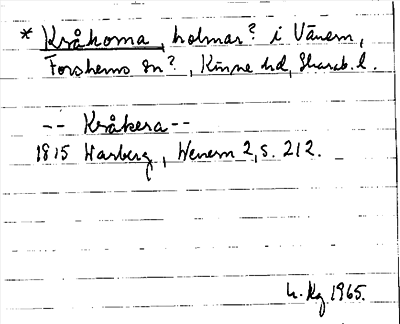 * Kråkorna, holmar? i Vänern,
Forshems sn?, Kinne hd, Skarab. l.
-- Kråkera --
1815 Warberg, Wenern 2, s. 212.
1965.